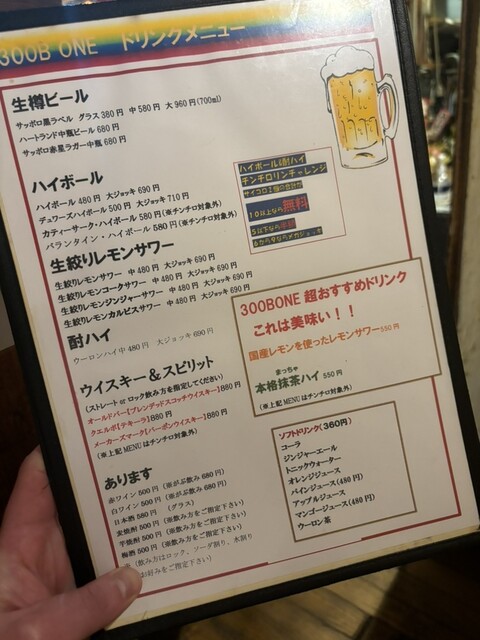 300B ONE ドリンクメニュー
生樽ビール
サッポロ黒ラベル グラス380円 中580円 大960円(700ml)
ハートランド中瓶ビール 680円
サッポロ赤星ラガー中瓶 680円
ハイボール
ハイボール 480円 大ジョッキ 690円
デュワーズハイボール 500円 大ジョッキ 710円
カティーサーク・ハイボール 580円(※チンチロ対象外)
バランタイン・ハイボール 580円(※チンチロ対象外)
ハイボール&酎ハイ
チンチロリンチャレンジ
サイコロ2個の合計が
10以上なら無料
5以下なら半額
6から9ならメガジョッキ
生絞りレモンサワー
生絞りレモンサワー 中480円 大ジョッキ690円
生絞りレモンコークサワー 中480円 大ジョッキ690円
生絞りレモンジンジャーサワー 中480円 大ジョッキ690円
生絞りレモンカルピスサワー 中480円 大ジョッキ690円
酎ハイ
ウーロンハイ中480円 大ジョッキ690円
300BONE 超おすすめドリンク
これは美味い!!
国産レモンを使ったレモンサワー550円
まっちゃ
本格抹茶ハイ 550円
(※上記MENUはチンチロ対象外)
ウイスキー&スピリット
(ストレート or ロック飲み方を指定してください)
オールドパー【ブレンデッドスコッチウイスキー】880円
クエルボ【テキーラ】880円
メーカーズマーク【バーボンウイスキー】880円
(※上記MENUはチンチロ対象外)
あります
赤ワイン500円(※がぶ飲み 680円)
白ワイン500円(※がぶ飲み 680円)
日本酒 580円 (グラス)
麦焼酎500円(※飲み方をご指定下さい)
芋焼酎500円(※飲み方をご指定下さい)
梅酒500円(※飲み方をご指定下さい)
(飲み方はロック、ソーダ割り、水割り
お好みをご指定下さい)
ソフトドリンク(360円)
コーラ
ジンジャーエール
トニックウォーター
オレンジジュース
パインジュース(480円)
アップルジュース
マンゴージュース(480円)
ウーロン茶